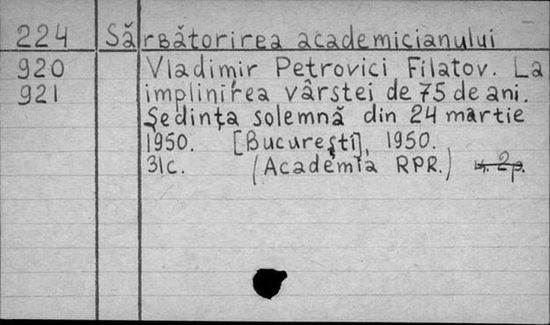 224 Sărbătorirea academicianului
920 Vladimir Petrovici Filatov. La
921 implinirea vârstei de 75 de ani.
Ședința solemnă din 24 martie
1950. [București], 1950.
31c. (Academia RPR.)